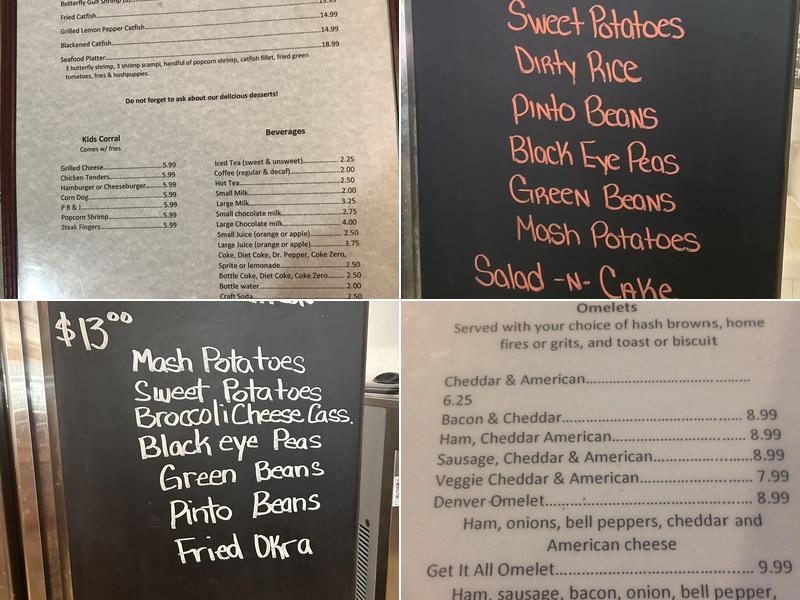 Butterfly Gulf Shrimp
Fried Catfish 14.99
Grilled Lemon Pepper Catfish 14.99
Blackened Catfish 18.99
Seafood Platter
3 butterfly shrimp, 3 shrimp scampi, handful of popcorn shrimp, catfish fillet, fried green
tomatoes, fries & hushpuppies.
Do not forget to ask about our delicious desserts!
Kids Corral
Comes w/ fries
Grilled Cheese 5.99
Chicken Tenders 5.99
Hamburger or Cheeseburger 5.99
Corn Dog 5.99
P B & J 5.99
Popcorn Shrimp 5.99
Steak Fingers 5.99
Beverages
Iced Tea (sweet & unsweet) 2.25
Coffee (regular & decaf) 2.00
Hot Tea 2.50
Small Milk 2.00
Large Milk 3.25
Small chocolate milk 2.75
Large Chocolate milk 4.00
Small Juice (orange or apple) 2.50
Large Juice (orange or apple) 3.75
Coke, Diet Coke, Dr. Pepper, Coke Zero,
Sprite or lemonade 2.50
Bottle Coke, Diet Coke, Coke Zero 2.50
Bottle water 2.00
Craft Soda 2.50
Sweet Potatoes
Dirty Rice
Pinto Beans
Black Eye Peas
Green Beans
Mash Potatoes
Salad -N- Cake
$13.00
Mash Potatoes
Sweet Potatoes
Broccoli Cheese Cass.
Black eye Peas
Green Beans
Pinto Beans
Fried Okra
Omelets
Served with your choice of hash browns, home
fires or grits, and toast or biscuit
Cheddar & American
6.25
Bacon & Cheddar 8.99
Ham, Cheddar American 8.99
Sausage, Cheddar & American 8.99
Veggie Cheddar & American 7.99
Denver Omelet 8.99
Ham, onions, bell peppers, cheddar and
American cheese
Get It All Omelet 9.99
Ham, sausage, bacon, onion, bell pepper,